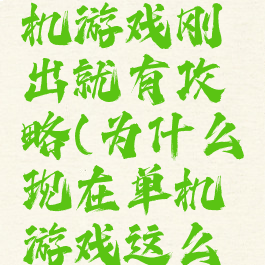 机游戏刚
出就有攻
略(为什么
现在单机
游戏这么